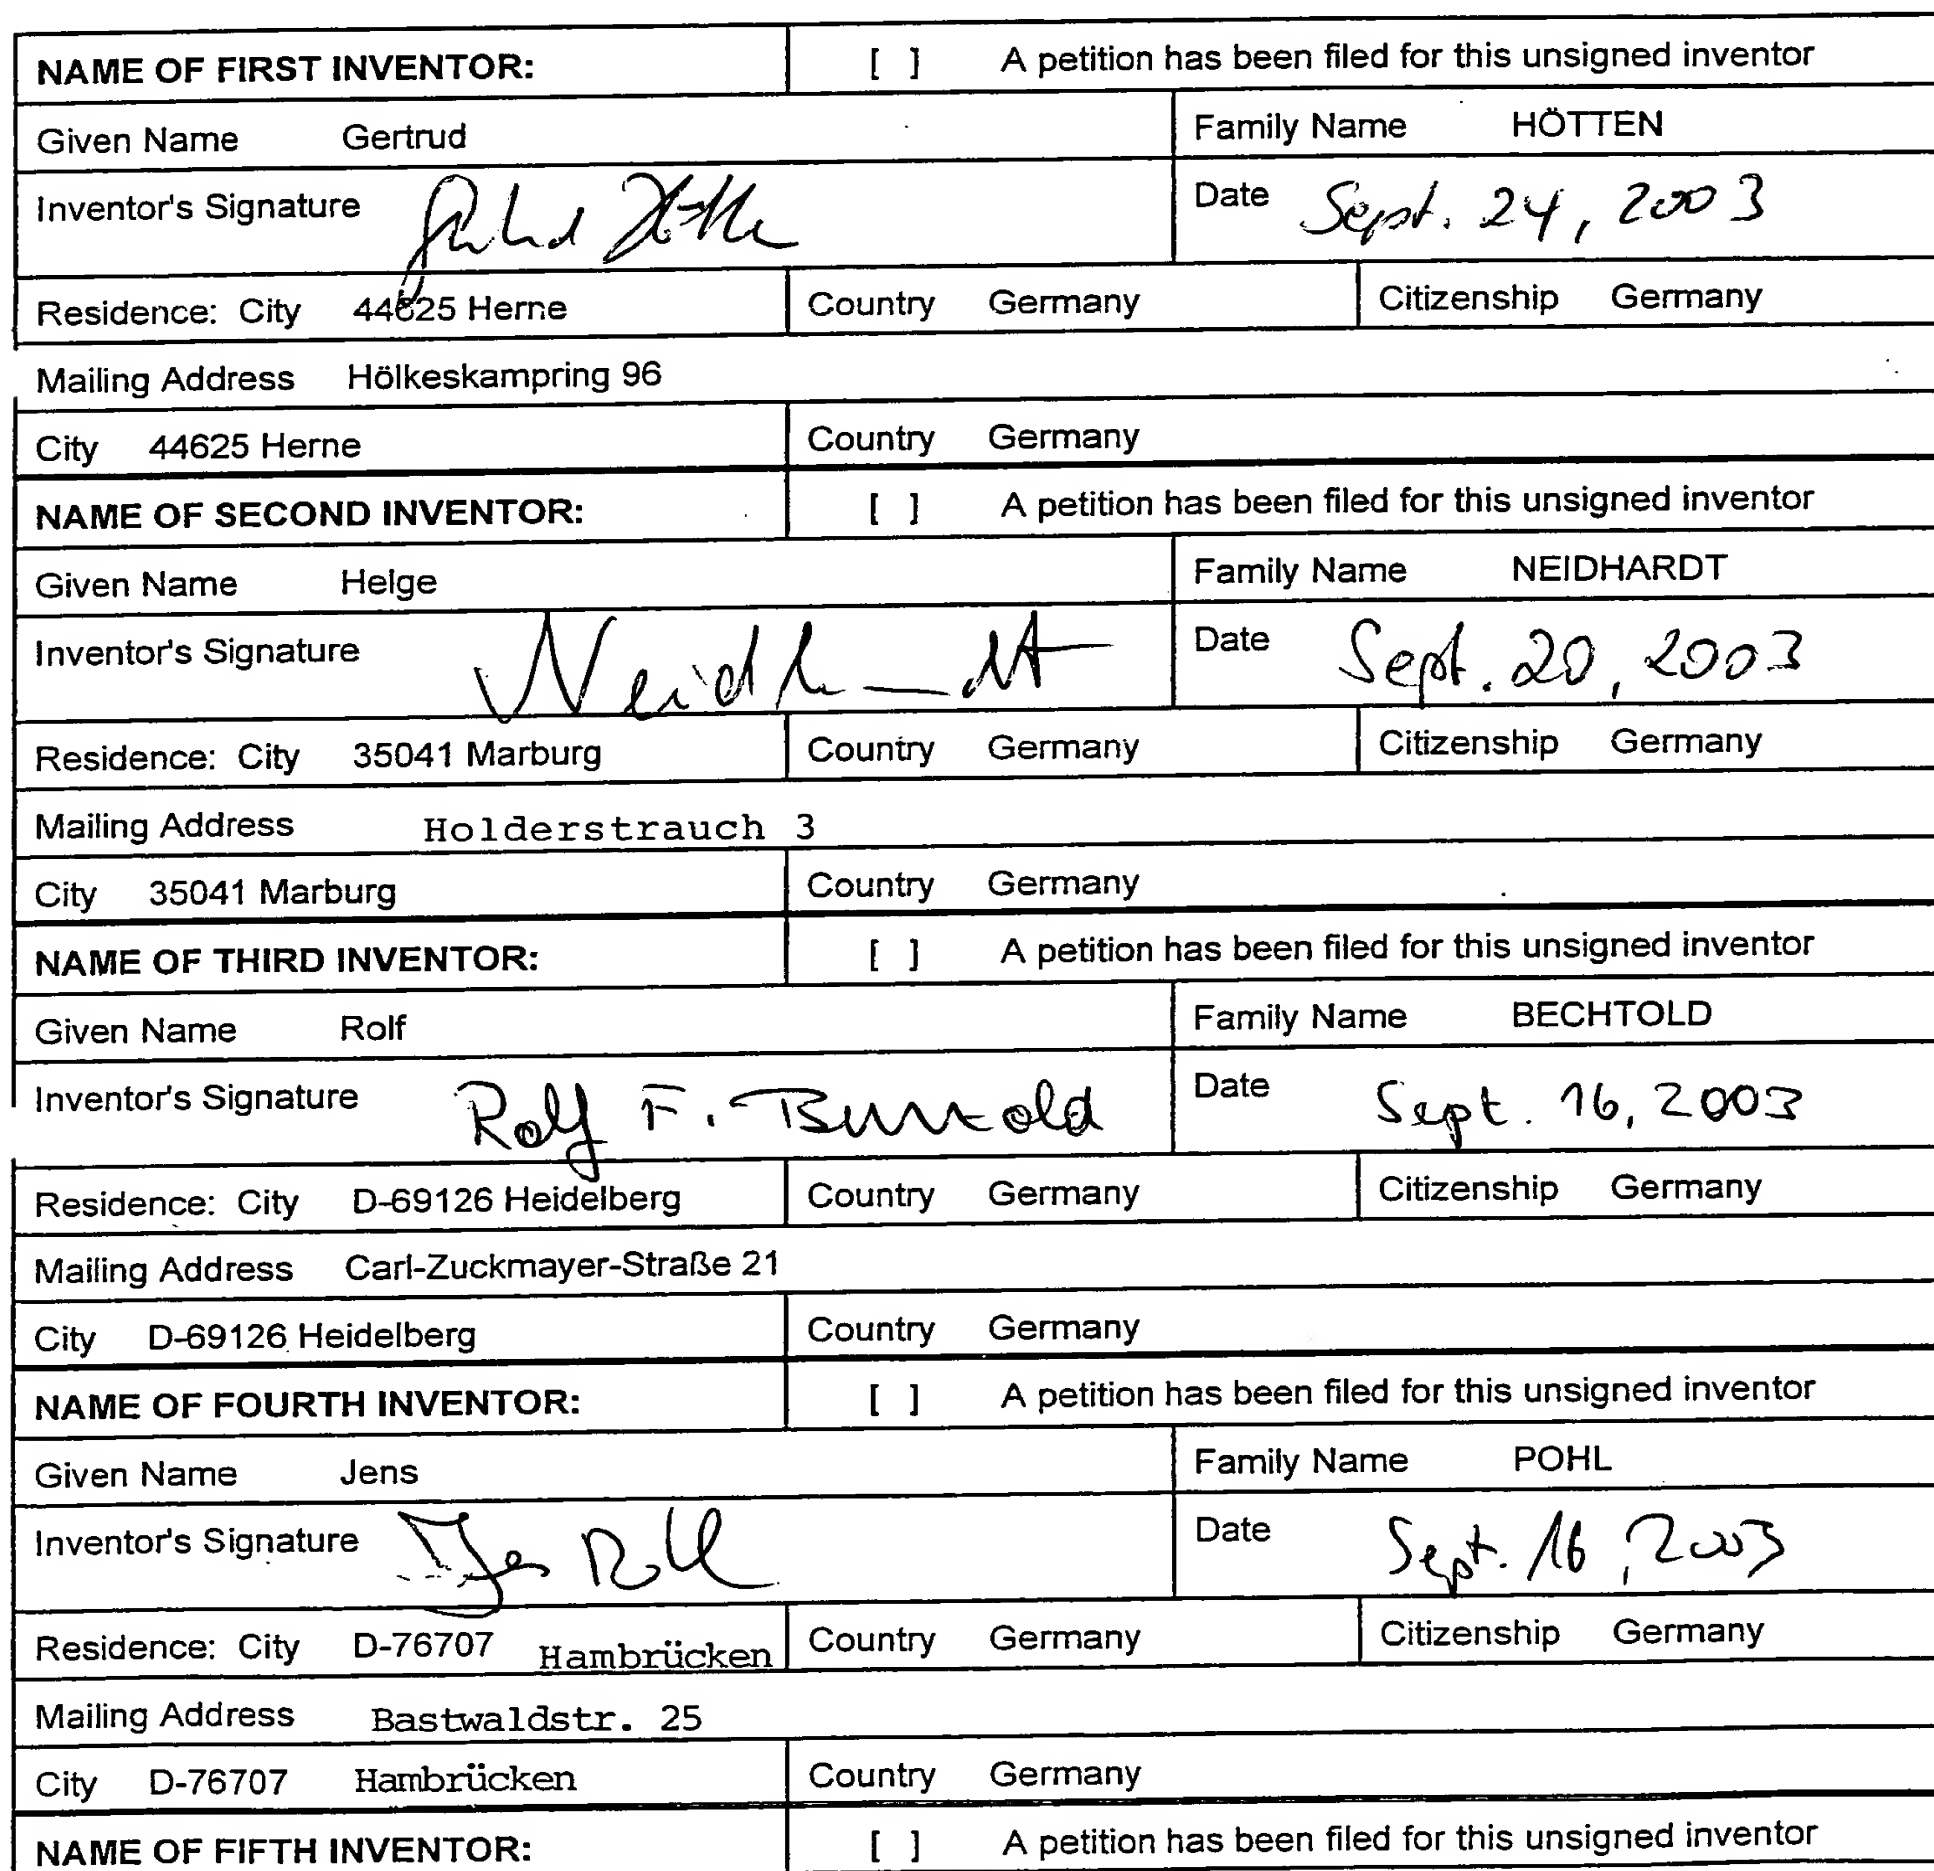 NAME OF FIRST INVENTOR: [ ] A petition has been filed for this unsigned inventor
Given Name Gertrud Family Name HÖTTEN
Inventor's Signature Date Sept. 24, 2003
Residence: City 44625 Herne Country Germany Citizenship Germany
Mailing Address Hölkeskampring 96
City 44625 Herne Country Germany
NAME OF SECOND INVENTOR: [ ] A petition has been filed for this unsigned inventor
Given Name Helge Family Name NEIDHARDT
Inventor's Signature Neidhardt Date Sept. 20, 2003
Residence: City 35041 Marburg Country Germany Citizenship Germany
Mailing Address Holderstrauch 3
City 35041 Marburg Country Germany
NAME OF THIRD INVENTOR: [ ] A petition has been filed for this unsigned inventor
Given Name Rolf Family Name BECHTOLD
Inventor's Signature Rolf F. Bechtold Date Sept. 16, 2003
Residence: City D-69126 Heidelberg Country Germany Citizenship Germany
Mailing Address Carl-Zuckmayer-Straße 21
City D-69126 Heidelberg Country Germany
NAME OF FOURTH INVENTOR: [ ] A petition has been filed for this unsigned inventor
Given Name Jens Family Name POHL
Inventor's Signature Jens Pohl Date Sept. 16, 2003
Residence: City D-76707 Hambrücken Country Germany Citizenship Germany
Mailing Address Bastwaldstr. 25
City D-76707 Hambrücken Country Germany
NAME OF FIFTH INVENTOR: [ ] A petition has been filed for this unsigned inventor